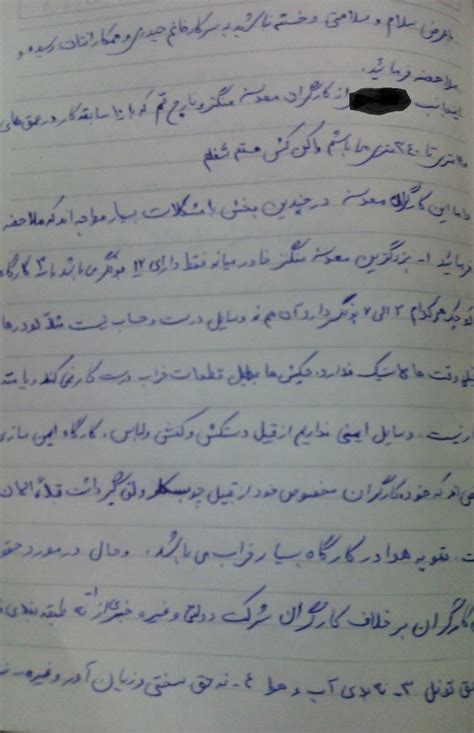 باعرض سلام و سلامتی و خسته نباشید به سرکار خانم حیدری و همکارانتان رسیده و
ملاحضه فرمائید.
اینجانب از کارگران معدن منگنز ونارچ قم که با ۱۰ سابقه کار در عمق های
متری تا ۳۴۰ متری می باشم واگن کش هستم شغلم
و اما این کارگران معدن در چندین بخش با مشکلات بسیار مواجه اند که ملاحضه
فرمائید ۱- بزرگترین معدن منگنز خاورمیانه فقط دارای ۱۲ می باشد با ۳ کارگاه
کوچک هر کدام ۲ الی ۶ دارد آن هم نه وسایل درست و حساب نیست مثلاً لودرها
وقت ها لاستیک ندارد بدلیل قطعات خراب درست کار نمی کند و یا
نیست. وسایل ایمنی نداریم از قبیل دستکش و کفش ولباس. کارگاه ایمن سازی
اند که خود کارگران مخصوص خود از قبیل چوب
تهویه هوا در کارگاه بسیار خراب می باشد. و حال در مورد حقوق
کارگران برخلاف کارگران شرک دولتی و غیره خبری از نه طبقه بندی
حق تونل ۳- نه بدی آب و هوا ۴- نه حق سختی و زیان آور و غیره-